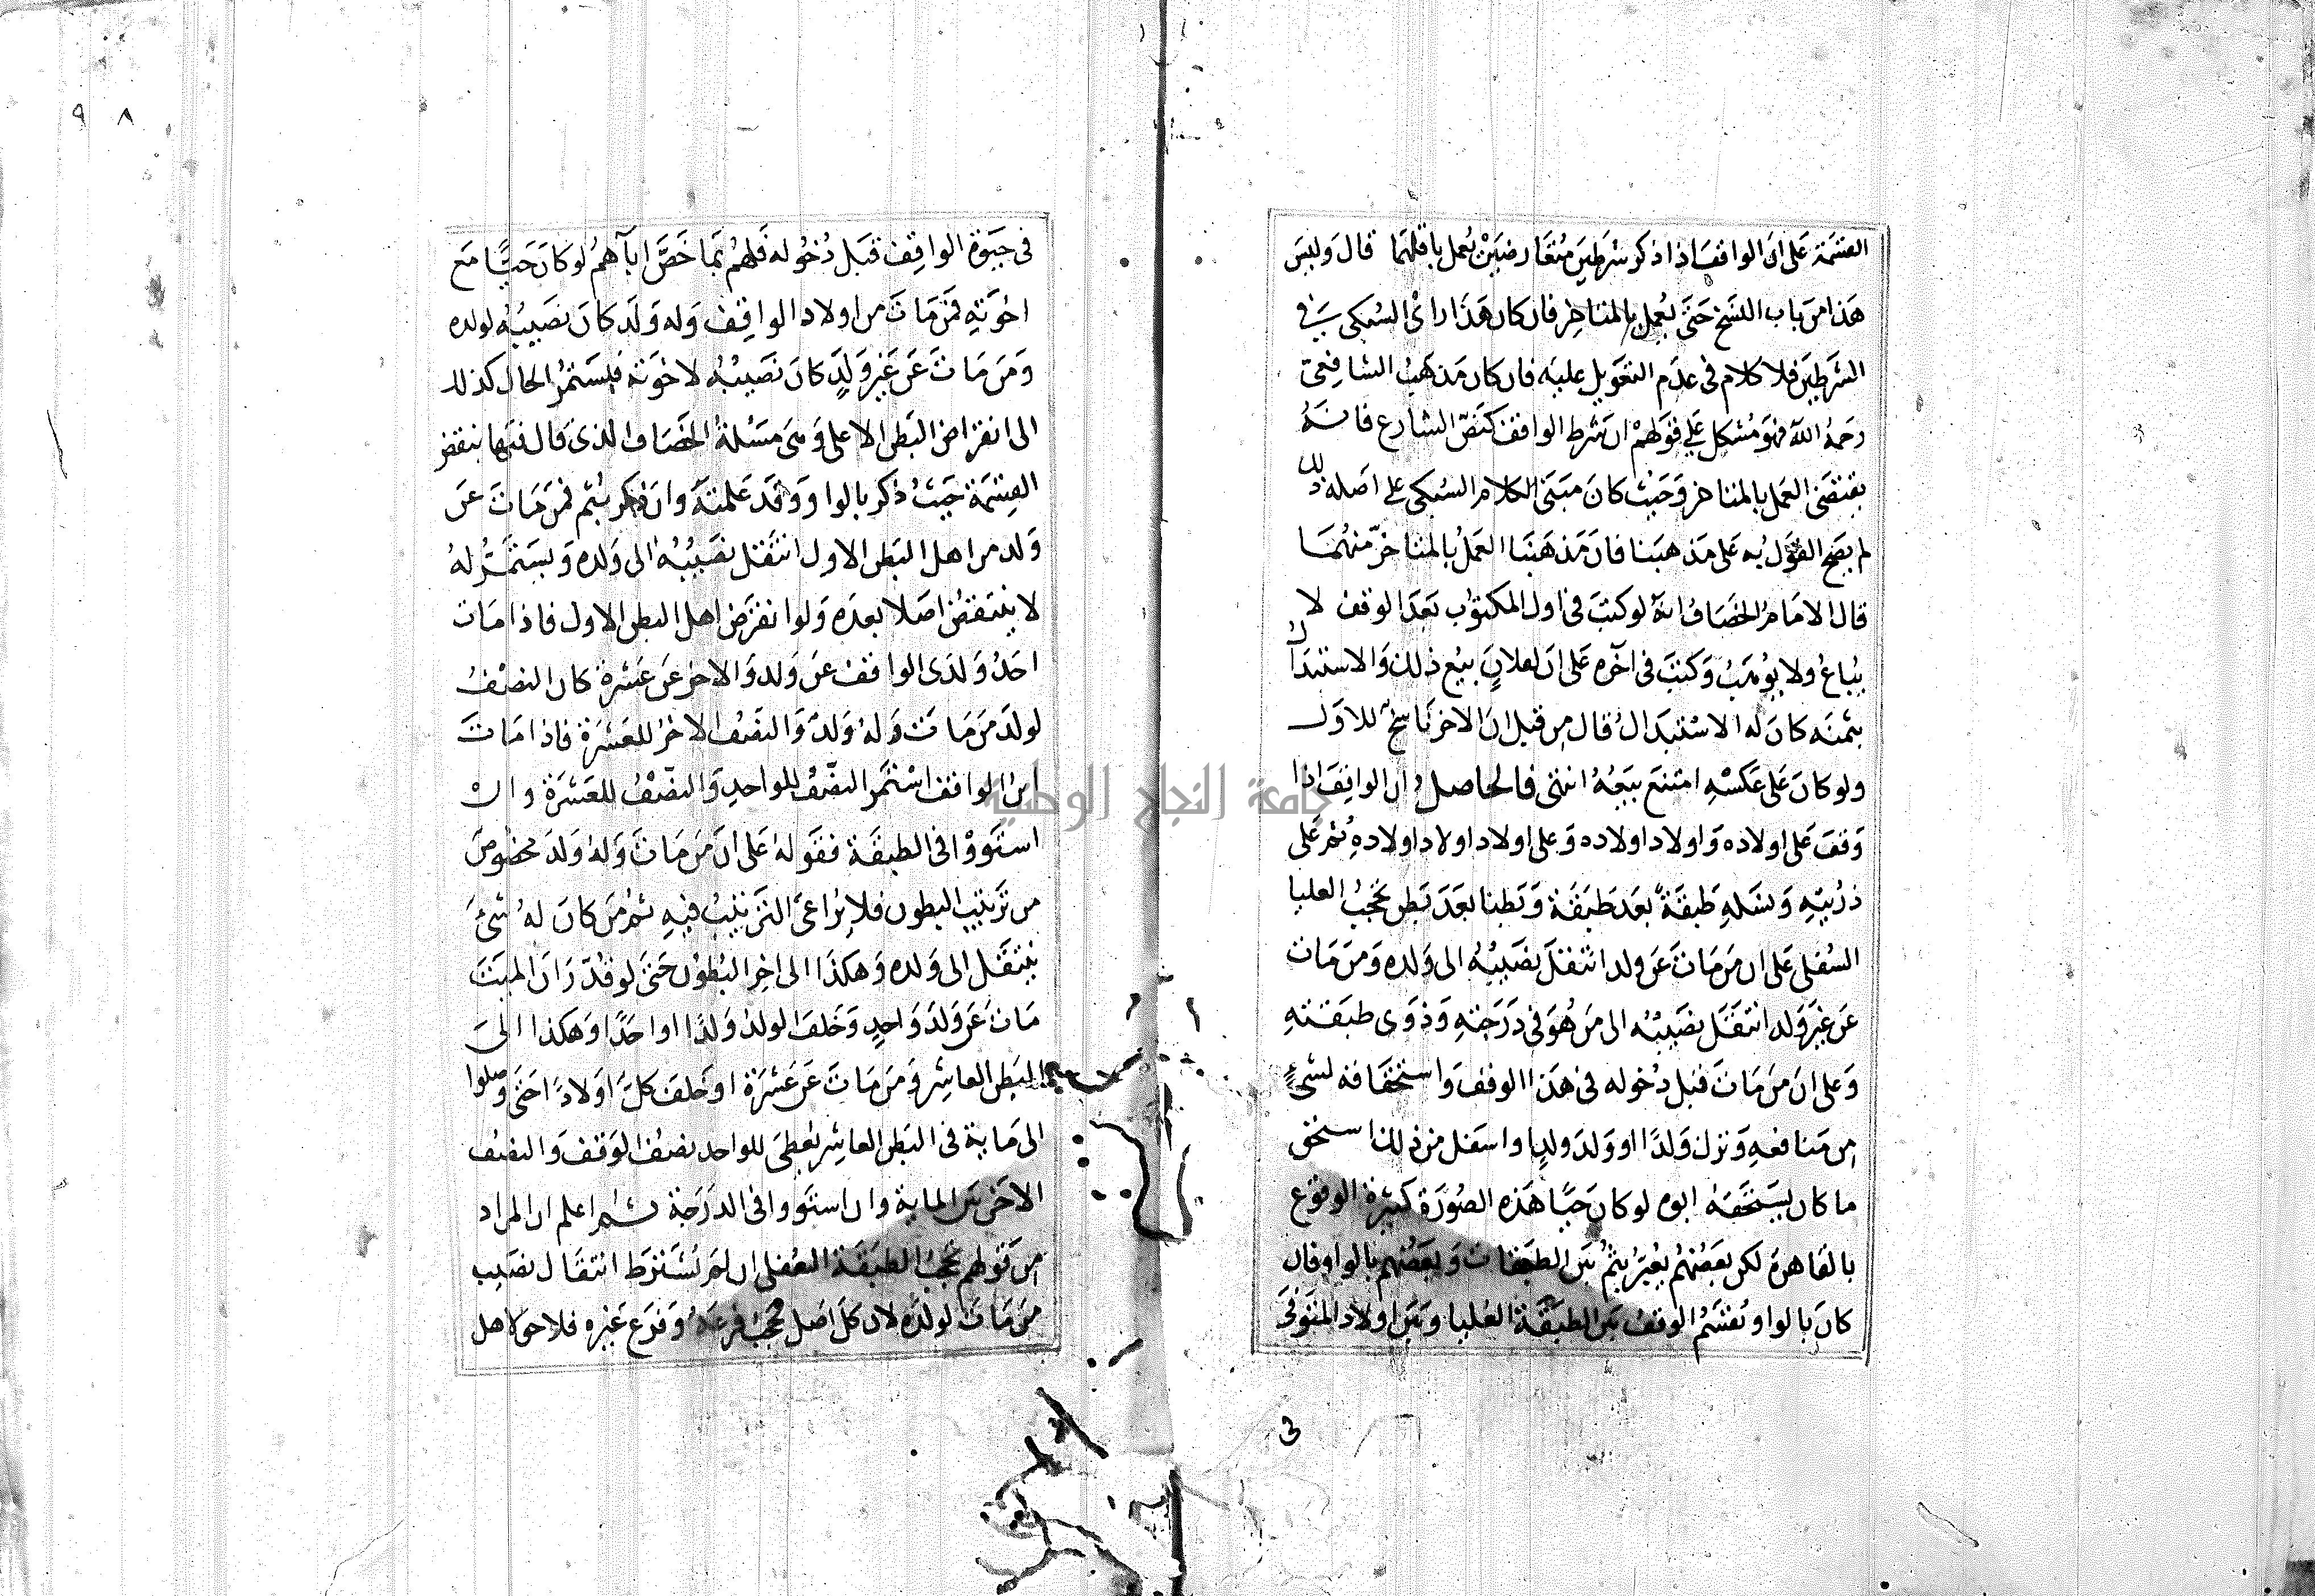 القسمة على ان الواقف اذا ذكر شرطين متعارضين يعمل باقلهما قال وليس
هذا من باب النسخ حتى يعمل بالمتاخر فان كان هذا راى السبكى في
الشرطين فلا كلام فى عدم التعويل عليه فان كان مذهب الشافعى
رحمه الله فهو مشكل على قولهم ان شرط الواقف كنص الشارع فانه
يقتضى العمل بالمتاخر وحيث كان مبنى الكلام السبكى على اصله ذلك
لم يصح القول به على مذهبنا فان مذهبنا العمل بالمتاخر منهما
قال الامام الخصاف انه لو كتب فى اول المكتوب بعد الوقف لا
يباع ولا يوهب وكتب فى آخره على ان لفلان بيع ذلك والاستبدال
بثمنه كان له الاستبدال قال من قبل ان الاخر ناسخ للاول
ولو كان على عكسه امتنع بيعه انتهى فالحاصل ان الواقف اذا
وقف على اولاده واولاد اولاده وعلى اولاد اولاد اولاده ثم على
ذريته ونسله طبقة بعد طبقة وبطنا بعد بطن تحجب العليا
السفلى على ان من مات عن ولد انتقل نصيبه الى ولده ومن مات
عن غير ولد انتقل نصيبه الى من هو فى درجته وذوى طبقته
وعلى ان من مات قبل دخوله فى هذا الوقف واستحقاقه لشىء
من منافعه وترك ولدا او ولد ولد او اسفل من ذلك استحق
ما كان يستحقه ابوه لو كان حيا هذه الصورة كثيرة الوقوع
بالقاهرة لكن بعضهم يعبر بثم بين الطبقات وبعضهم بالواو فان
كان بالواو تقسم الوقف بين الطبقة العليا وبين اولاد المتوفى
فى
جامعة النجاح الوطنية
٩ ٨
فى حيوة الواقف قبل دخوله فلهم بما خص اباهم لو كان حيا مع
اخوته فمن مات من اولاد الواقف وله ولد كان نصيبه لولده
ومن مات عن غير ولد كان نصيبه لاخوته فيستمر الحال كذلك
الى انقراض البطن الاعلى وهى مسئلة الخصاف الذى قال فيها بنقض
القسمة حيث ذكر بالواو وقد علمته وان ذكر بثم فمن مات عن
ولد من اهل البطن الاول انتقل نصيبه الى ولده ويستمر له
لا ينتقض اصلا بعده ولو انقرض اهل البطن الاول فاذا مات
احد ولدى الواقف عن ولد والاخر عن عشرة كان النصف
لولد من مات وله ولد والنصف الاخر للعشرة فاذا مات
ابن الواقف استمر النصف للواحد والنصف للعشرة وان
استووا فى الطبقة فقوله على ان من مات وله ولد مخصوص
من ترتيب البطون فلا يراعى الترتيب فيه ثم من كان له شىء
ينتقل الى ولده وهكذا الى اخر البطون حتى لو قدر ان الميت
مات عن ولد واحد وخلف الولد ولدا واحدا وهكذا الى
البطن العاشر ومن مات عن عشرة او خلف كل اولادا حتى وصلوا
الى ماية فى البطن العاشر يعطى للواحد نصف الوقف والنصف
الاخر بين الماية وان استووا فى الدرجة ثم اعلم ان المراد
من قولهم تحجب الطبقة السفلى ان لم يشترط انتقال نصيب
من مات لولده لان كل اصل يحجب فرعه وفرع غيره فلا حق لاهل